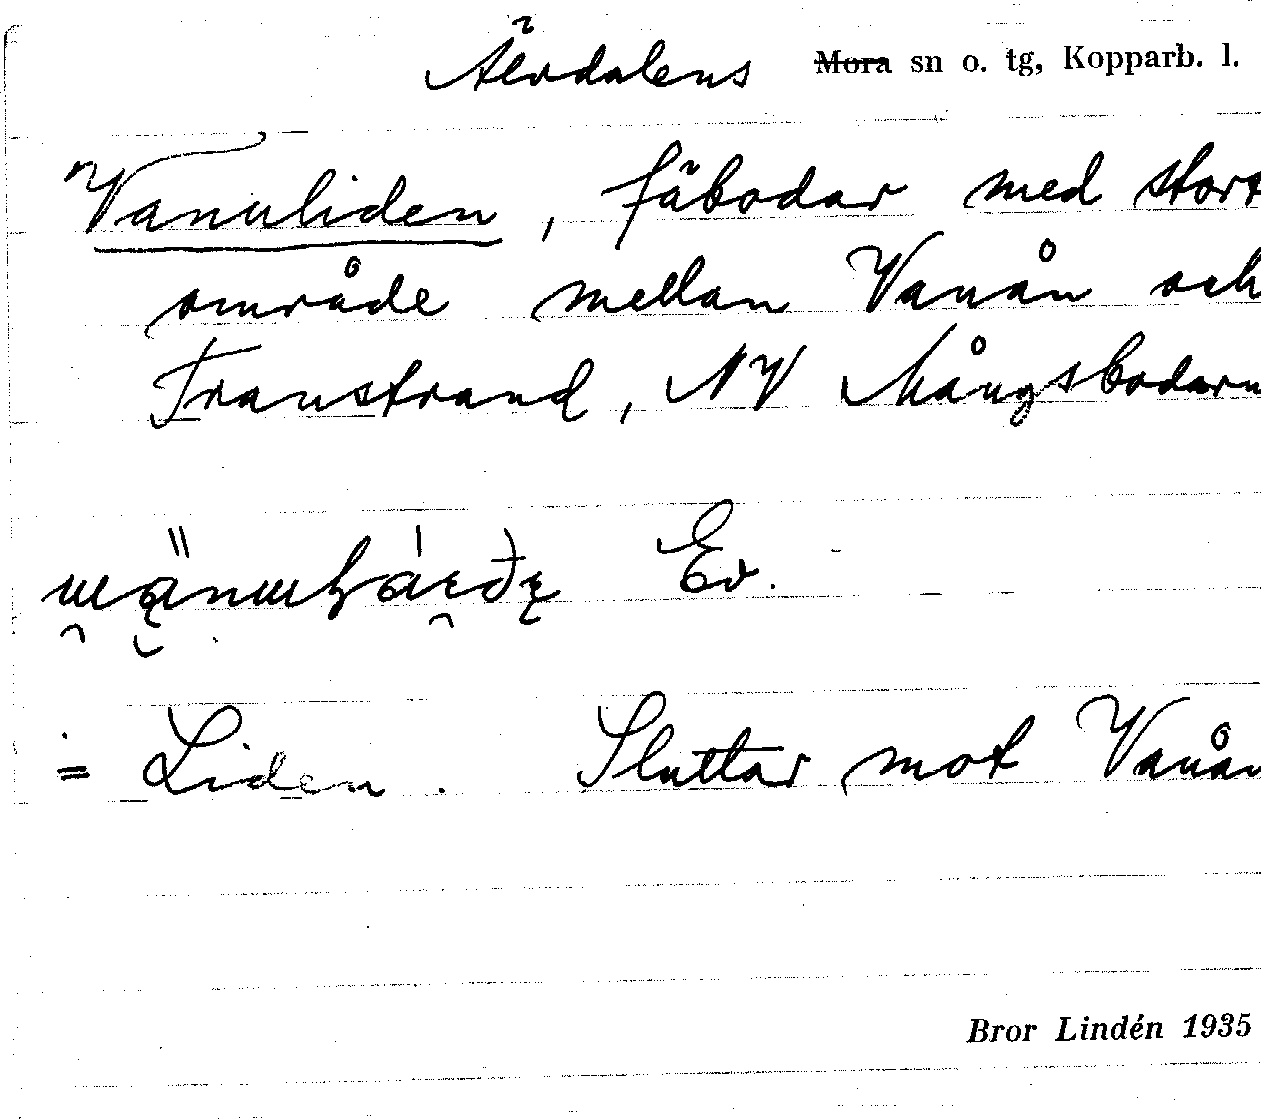 Älvdalens Mora sn o. tg, Kopparb. l.
Vanuliden, fäbodar med stort
område mellan Vanån och
Transtrand, NV Mångsbodarn
Ev.
= Liden. Sluttar mot Vanån
Bror Lindén 1935